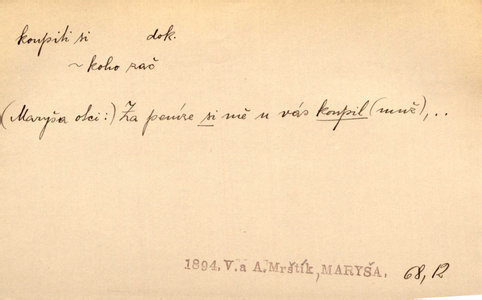 koupiti si dok.
~ koho zač
(Maryša otci:) Za peníze si mě u vás koupil (muž), ..
1894. V. a A. Mrštík, MARYŠA. 68, 12